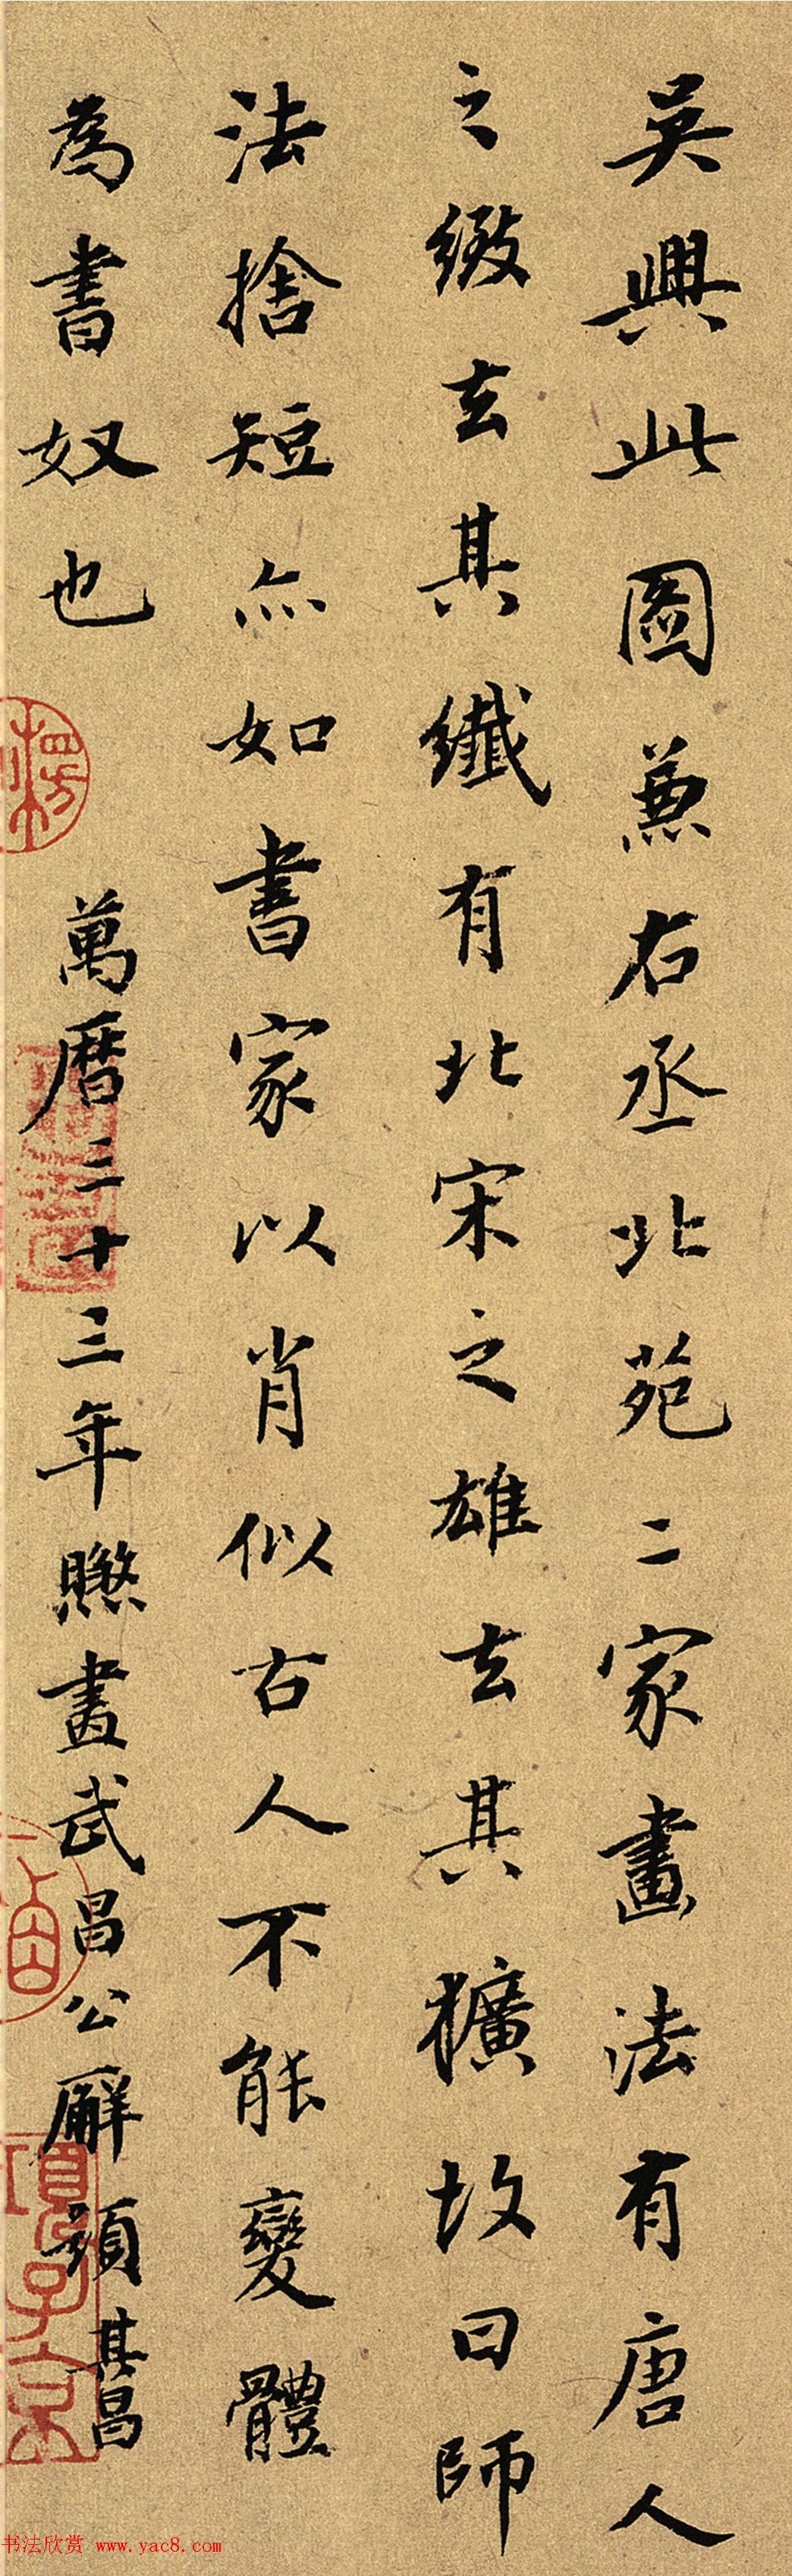 吳興此圖兼右丞北苑二家畫法有唐人
之緻去其纖有北宋之雄去其獷故曰師
法捨短亦如書家以肖似古人不能變體
為書奴也
萬曆三十三年㬠畫武昌公廨題其昌
項子京
书法欣赏 www.yac8.com